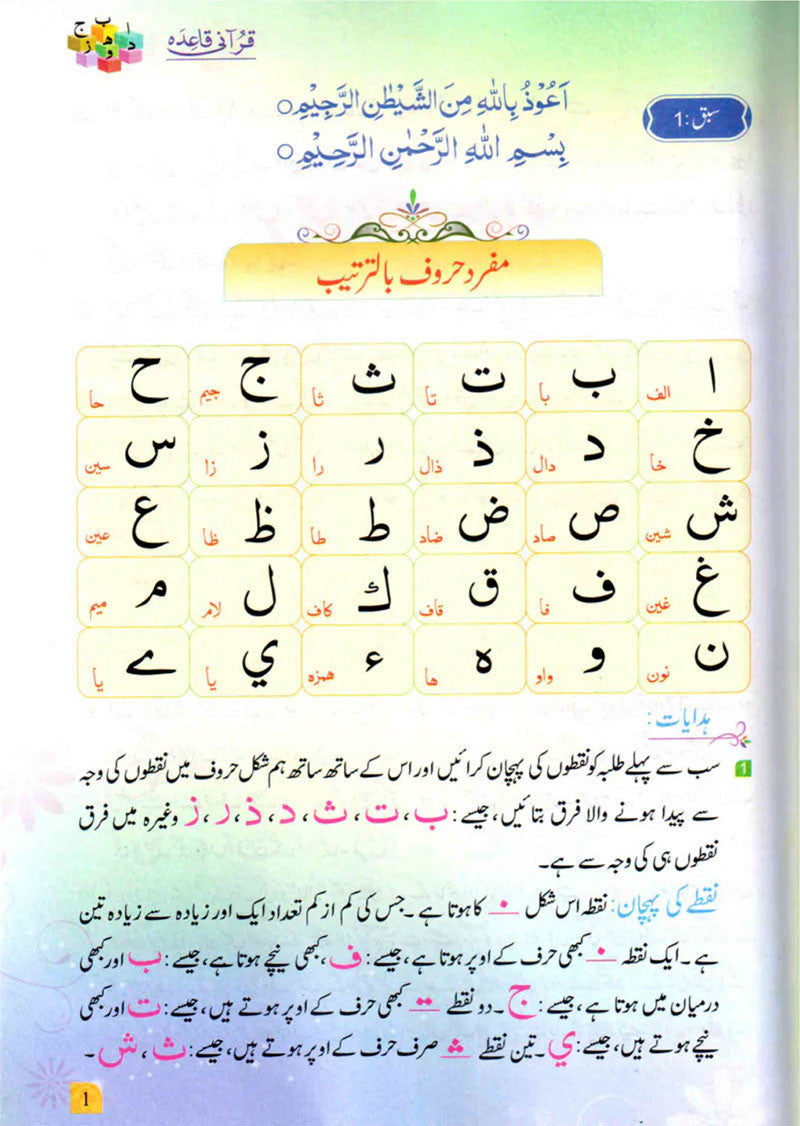 قرآنی قاعدہ
ا ب ج
د ھ و ز
سبق:1
اَعُوْذُ بِاللّٰهِ مِنَ الشَّيْطٰنِ الرَّجِيْمِ ○
بِسْمِ اللّٰهِ الرَّحْمٰنِ الرَّحِيْمِ ○
مفرد حروف بالترتیب
ا الف ب با ت تا ث ثا ج جیم ح حا
خ خا د دال ذ ذال ر را ز زا س سین
ش شین ص صاد ض ضاد ط طا ظ ظا ع عین
غ غین ف فا ق قاف ك کاف ل لام م میم
ن نون و واو ه ھا ء ہمزہ ي یا ے یا
ہدایات:
1 سب سے پہلے طلبہ کو نقطوں کی پہچان کرائیں اور اس کے ساتھ ساتھ ہم شکل حروف میں نقطوں کی وجہ
سے پیدا ہونے والا فرق بتائیں، جیسے: ب، ت، ث، د، ذ، ر، ز وغیرہ میں فرق
نقطوں ہی کی وجہ سے ہے۔
نقطے کی پہچان: نقطہ اس شکل کا ہوتا ہے۔ جس کی کم از کم تعداد ایک اور زیادہ سے زیادہ تین
ہے۔ ایک نقطہ کبھی حرف کے اوپر ہوتا ہے، جیسے: ف، کبھی نیچے ہوتا ہے، جیسے: ب اور کبھی
درمیان میں ہوتا ہے، جیسے: ج۔ دو نقطے کبھی حرف کے اوپر ہوتے ہیں، جیسے: ت اور کبھی
نیچے ہوتے ہیں، جیسے: ي۔ تین نقطے صرف حرف کے اوپر ہوتے ہیں، جیسے: ث، ش۔
1